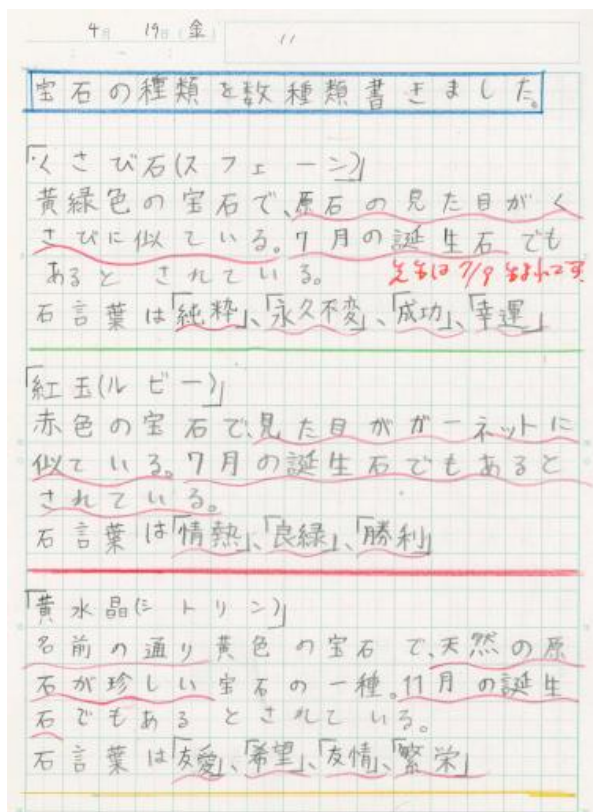 4月 19日(金)
11
宝石の種類を数種類書きました。
「くさび石(スフェーン)」
黄緑色の宝石で、原石の見た目がく
さびに似ている。7月の誕生石でも
あるとされている。
先生は7/9生まれです。
石言葉は「純粋」、「永久不変」、「成功」、「幸運」
「紅玉(ルビー)」
赤色の宝石で、見た目がガーネットに
似ている。7月の誕生石でもあると
されている。
石言葉は「情熱」、「良縁」、「勝利」
「黄水晶(シトリン)」
名前の通り黄色の宝石で、天然の原
石が珍しい宝石の一種。11月の誕生
石でもあるとされている。
石言葉は「友愛」、「希望」、「友情」、「繁栄」